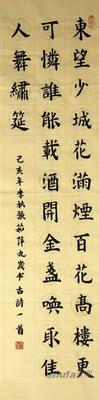 東望少城花滿煙百花高樓更
可憐誰能載酒開金盞喚取佳
人舞繡筵
己亥年季秋張茹萍九歲书古詩一首